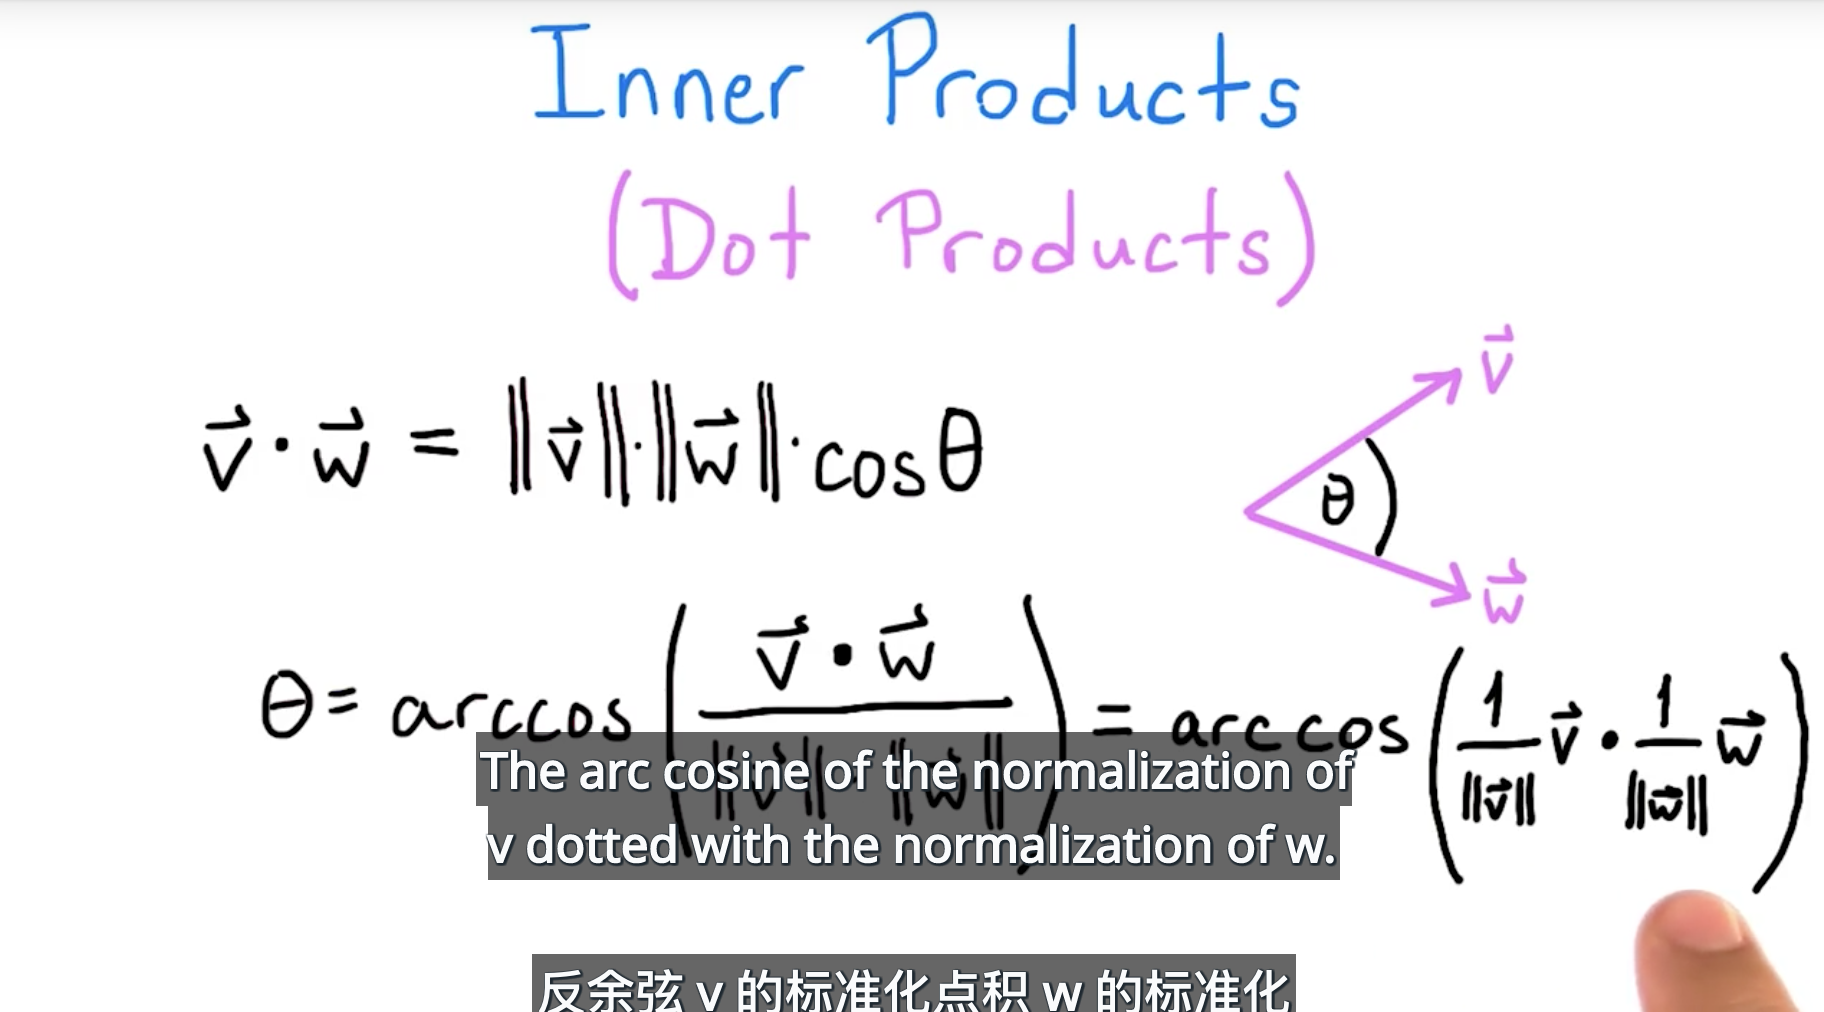 Inner Products
(Dot Products)
v⃗ · w⃗ = ‖v⃗‖·‖w⃗‖·cosθ
v⃗
θ
w⃗
θ = arccos( v⃗ · w⃗ / ‖v⃗‖ ‖w⃗‖ ) = arccos( 1/‖v⃗‖ v⃗ · 1/‖w⃗‖ w⃗ )
The arc cosine of the normalization of
v dotted with the normalization of w.
反余弦 v 的标准化点积 w 的标准化